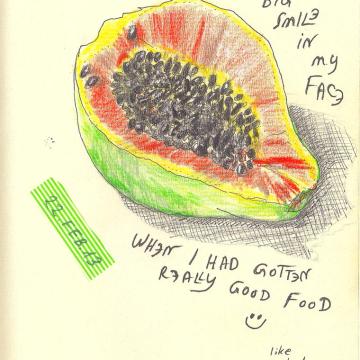 BIG
SMILE
IN
MY
FACE
22.FEB.13
WHEN I HAD GOTTEN
REALLY GOOD FOOD
like